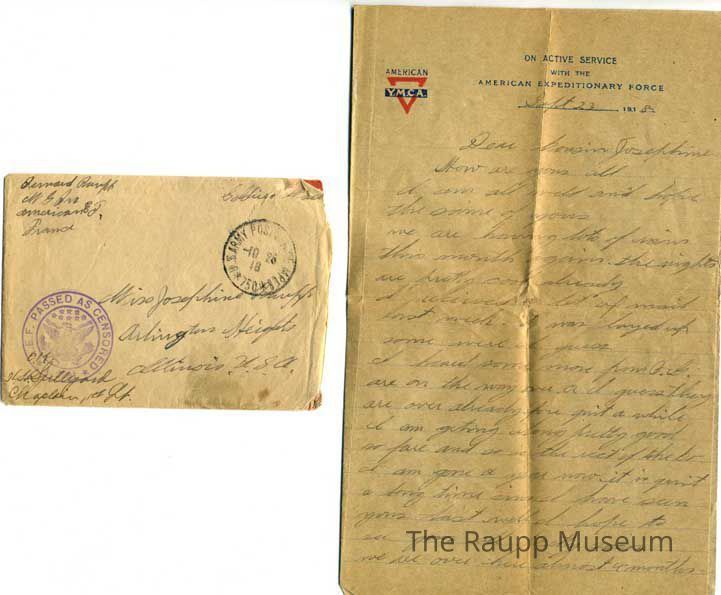 Bernard Raupp
American E. F.
France
U.S. ARMY POST
10
18
Miss Josephine Raupp
Arlington Heights
Illinois U.S.A.
A.E.F. PASSED AS CENSORED
O.K.
AMERICAN
Y.M.C.A.
ON ACTIVE SERVICE
WITH THE
AMERICAN EXPEDITIONARY FORCE
Sept 22 1918
Dear Cousin Josephine
How are you all
I am all well and hope
the same of yours
we are having lots of rains
this month again. the nights
are pretty cool already
I received a lot of mail
last week. was layed up
some were I guess
I heard some more from
are on the way over or I guess they
are over already for quit a while
I am geting along pretty good
so fare and so is the rest of the
I am gone a year now it is quit
a long time since I have seen
you last well I hope to
The Raupp Museum
we are over here almost 4 months